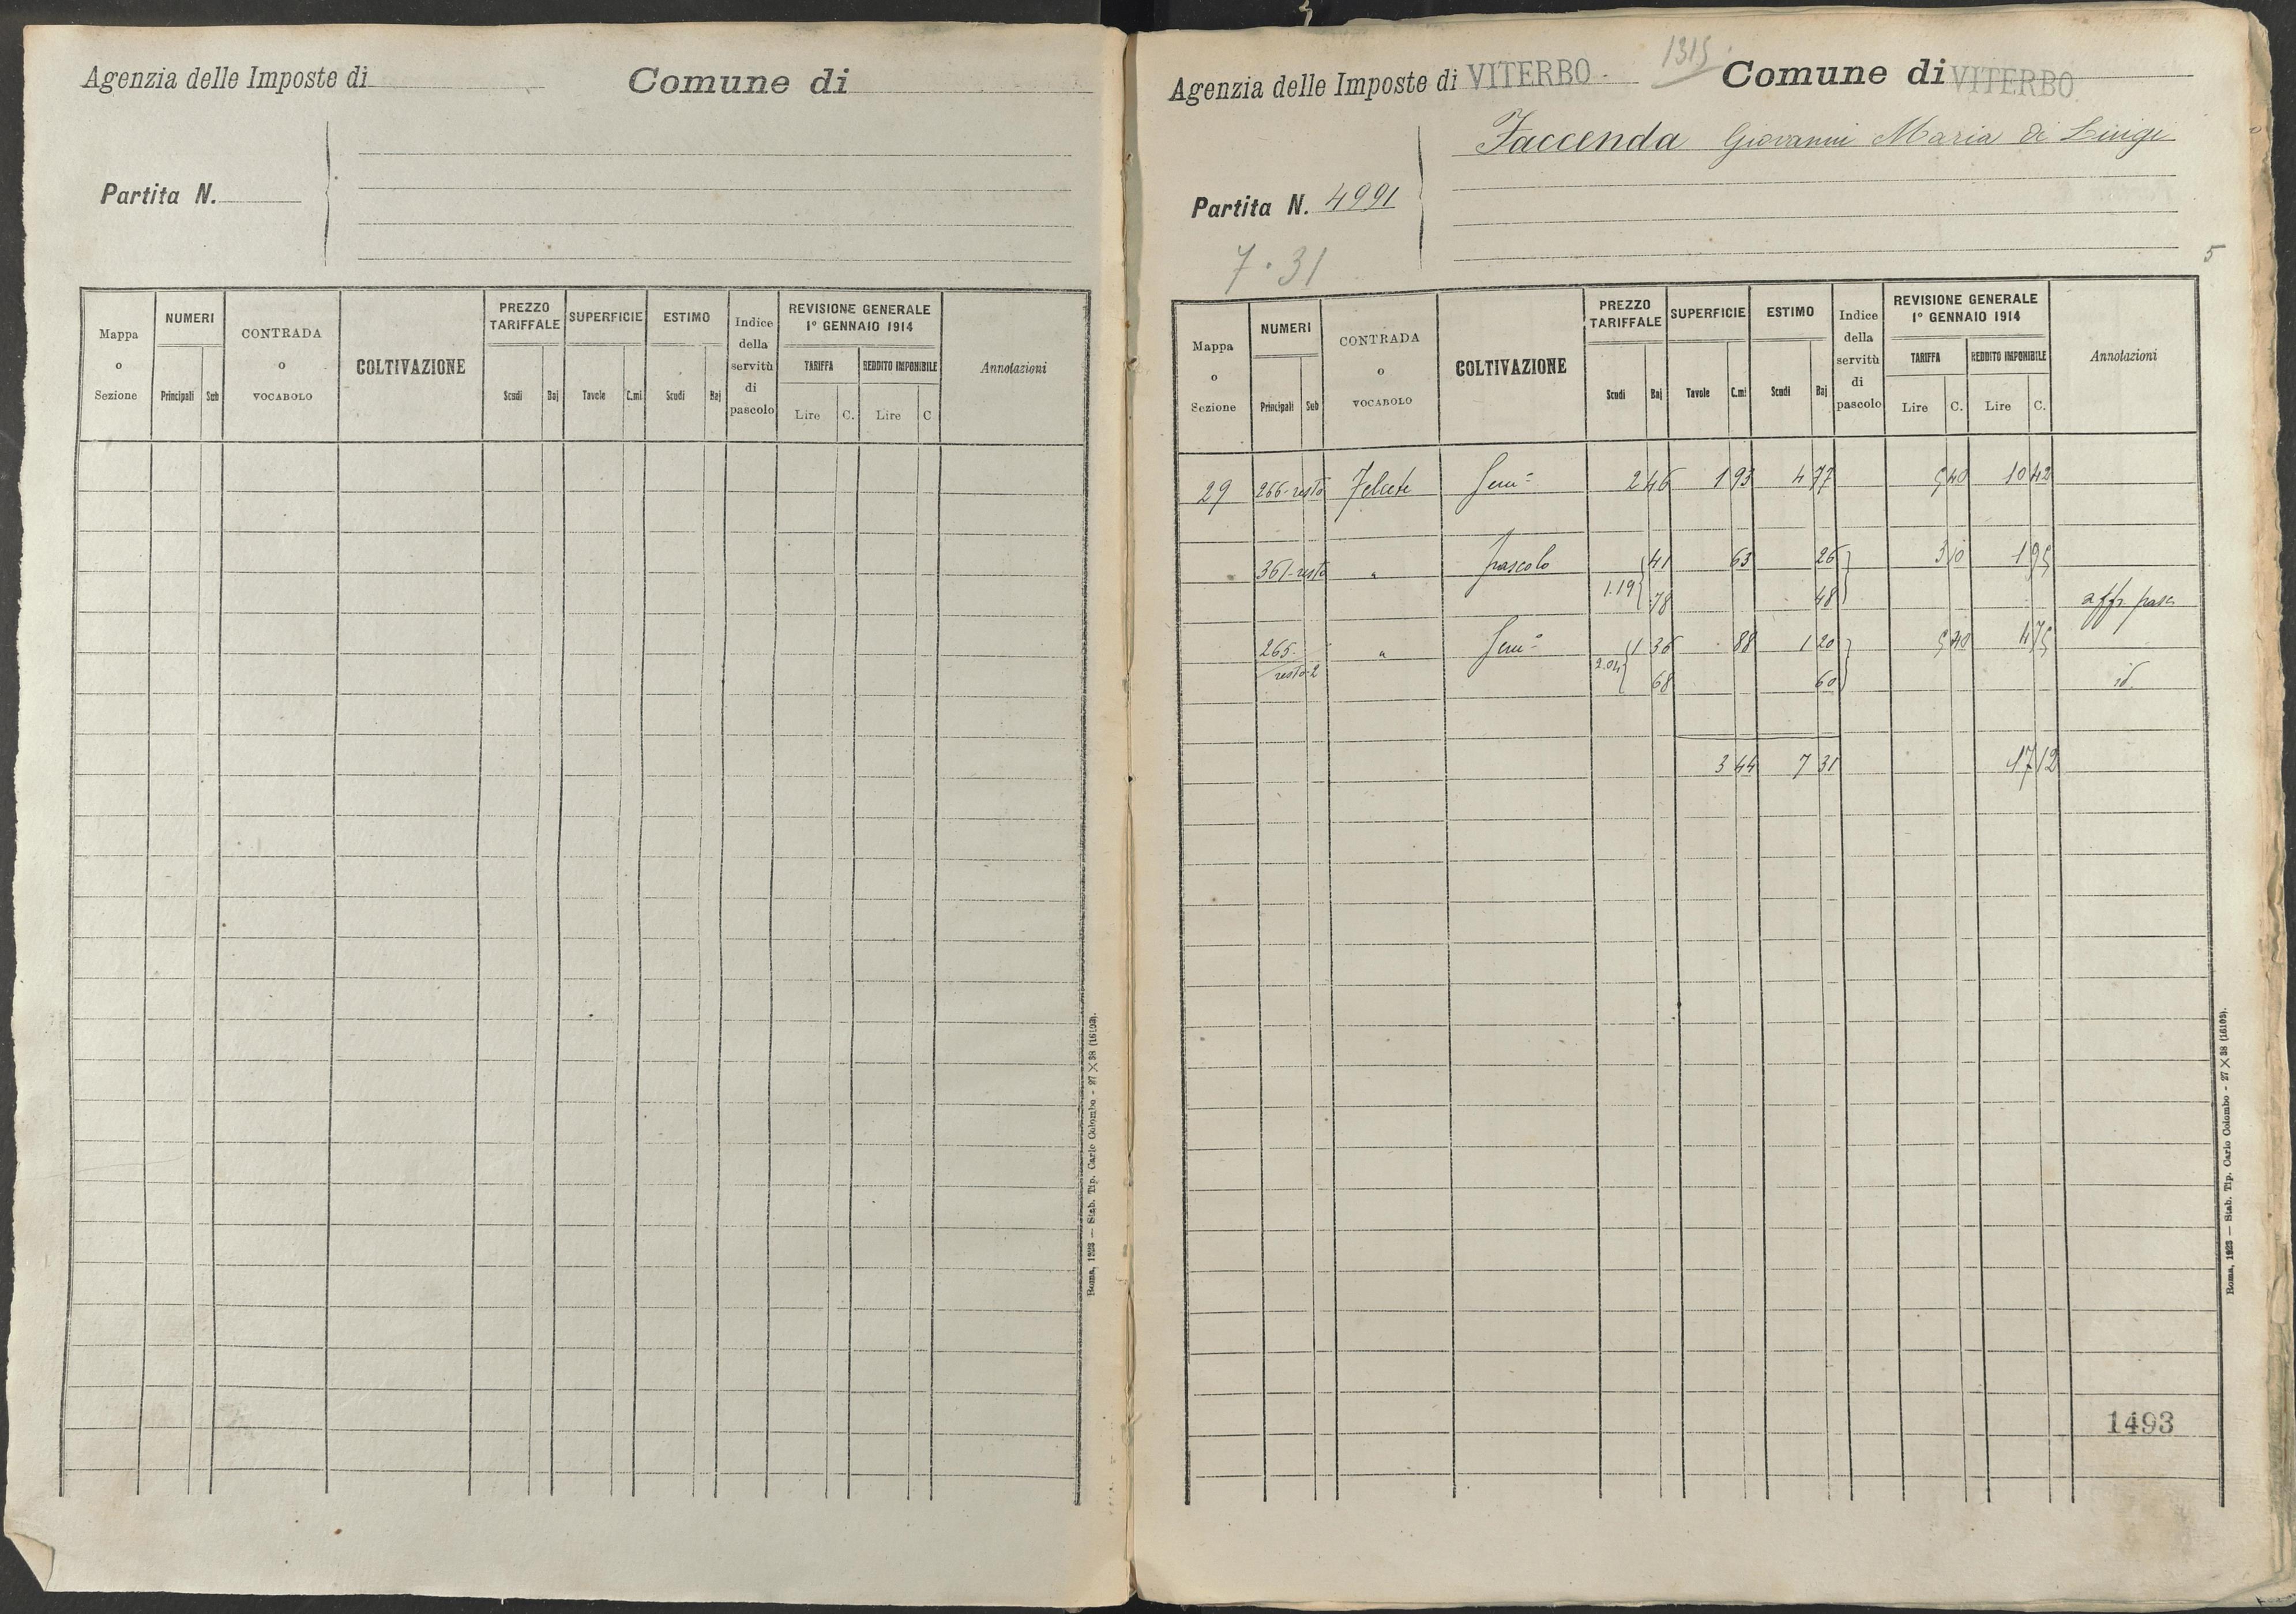 Agenzia delle Imposte di
Comune di
Partita N.
Mappa o Sezione
NUMERI
Principali Sub
CONTRADA o VOCABOLO
COLTIVAZIONE
PREZZO TARIFFALE
Scudi Baj
SUPERFICIE
Tavole C.mi
ESTIMO
Scudi Baj
Indice della servitù di pascolo
REVISIONE GENERALE
1° GENNAIO 1914
TARIFFA
REDDITO IMPONIBILE
Lire C. Lire C
Annotazioni
Roma, 1923 — Stab. Tip. Carlo Colombo - 27 X 38 (16103).
1315
Agenzia delle Imposte di VITERBO
Comune di VITERBO
Faccenda Giovanni Maria di Luigi
Partita N. 4991
7.31
5
Mappa o Sezione
NUMERI
Principali Sub
CONTRADA o VOCABOLO
COLTIVAZIONE
PREZZO TARIFFALE
Scudi Baj
SUPERFICIE
Tavole C.mi
ESTIMO
Scudi Baj
Indice della servitù di pascolo
REVISIONE GENERALE
1° GENNAIO 1914
TARIFFA
REDDITO IMPONIBILE
Lire C. Lire C.
Annotazioni
29 266-resto 2 46 1 93 4 77 5 40 10 42
361-resto " pascolo 41 63 26 3 10 1 95
1.19 78 48 affr. pasc
265- " 1 36 88 1 20 5 40 4 75
resto-2 2.04 68 60 id.
3 44 7 31 17 12
1493
Roma, 1923 — Stab. Tip. Carlo Colombo - 27 X 38 (16103).